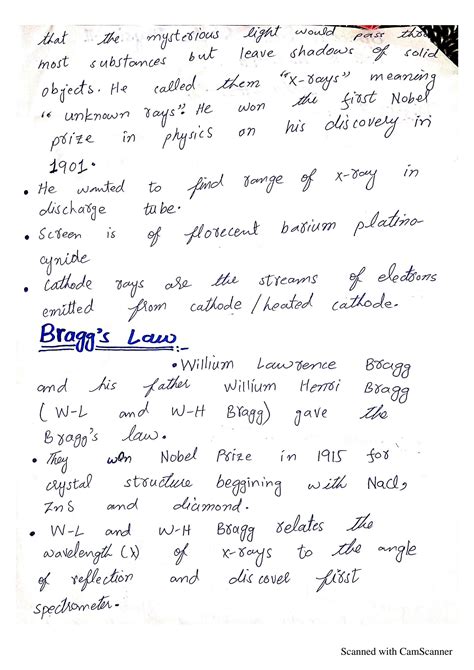 that the mysterious light would pass thro
most substances but leave shadows of solid
objects. He called them "x-rays" meaning
"unknown rays". He won the first Nobel
prize in physics on his discovery in
1901.
• He wanted to find range of x-ray in
discharge tube.
• Screen is of florecent barium platino
cynide
• Cathode rays are the streams of electrons
emitted from cathode / heated cathode.
Bragg's Law :-
• Willium Lawrence Bragg
and his father Willium Henri Bragg
( W-L and W-H Bragg) gave the
Bragg's law.
• They won Nobel Prize in 1915 for
crystal structure beggining with NaCl,
ZnS and diamond.
• W-L and W-H Bragg relates the
wavelength (λ) of x-rays to the angle
of reflection and discovel first
spectrometer.
Scanned with CamScanner